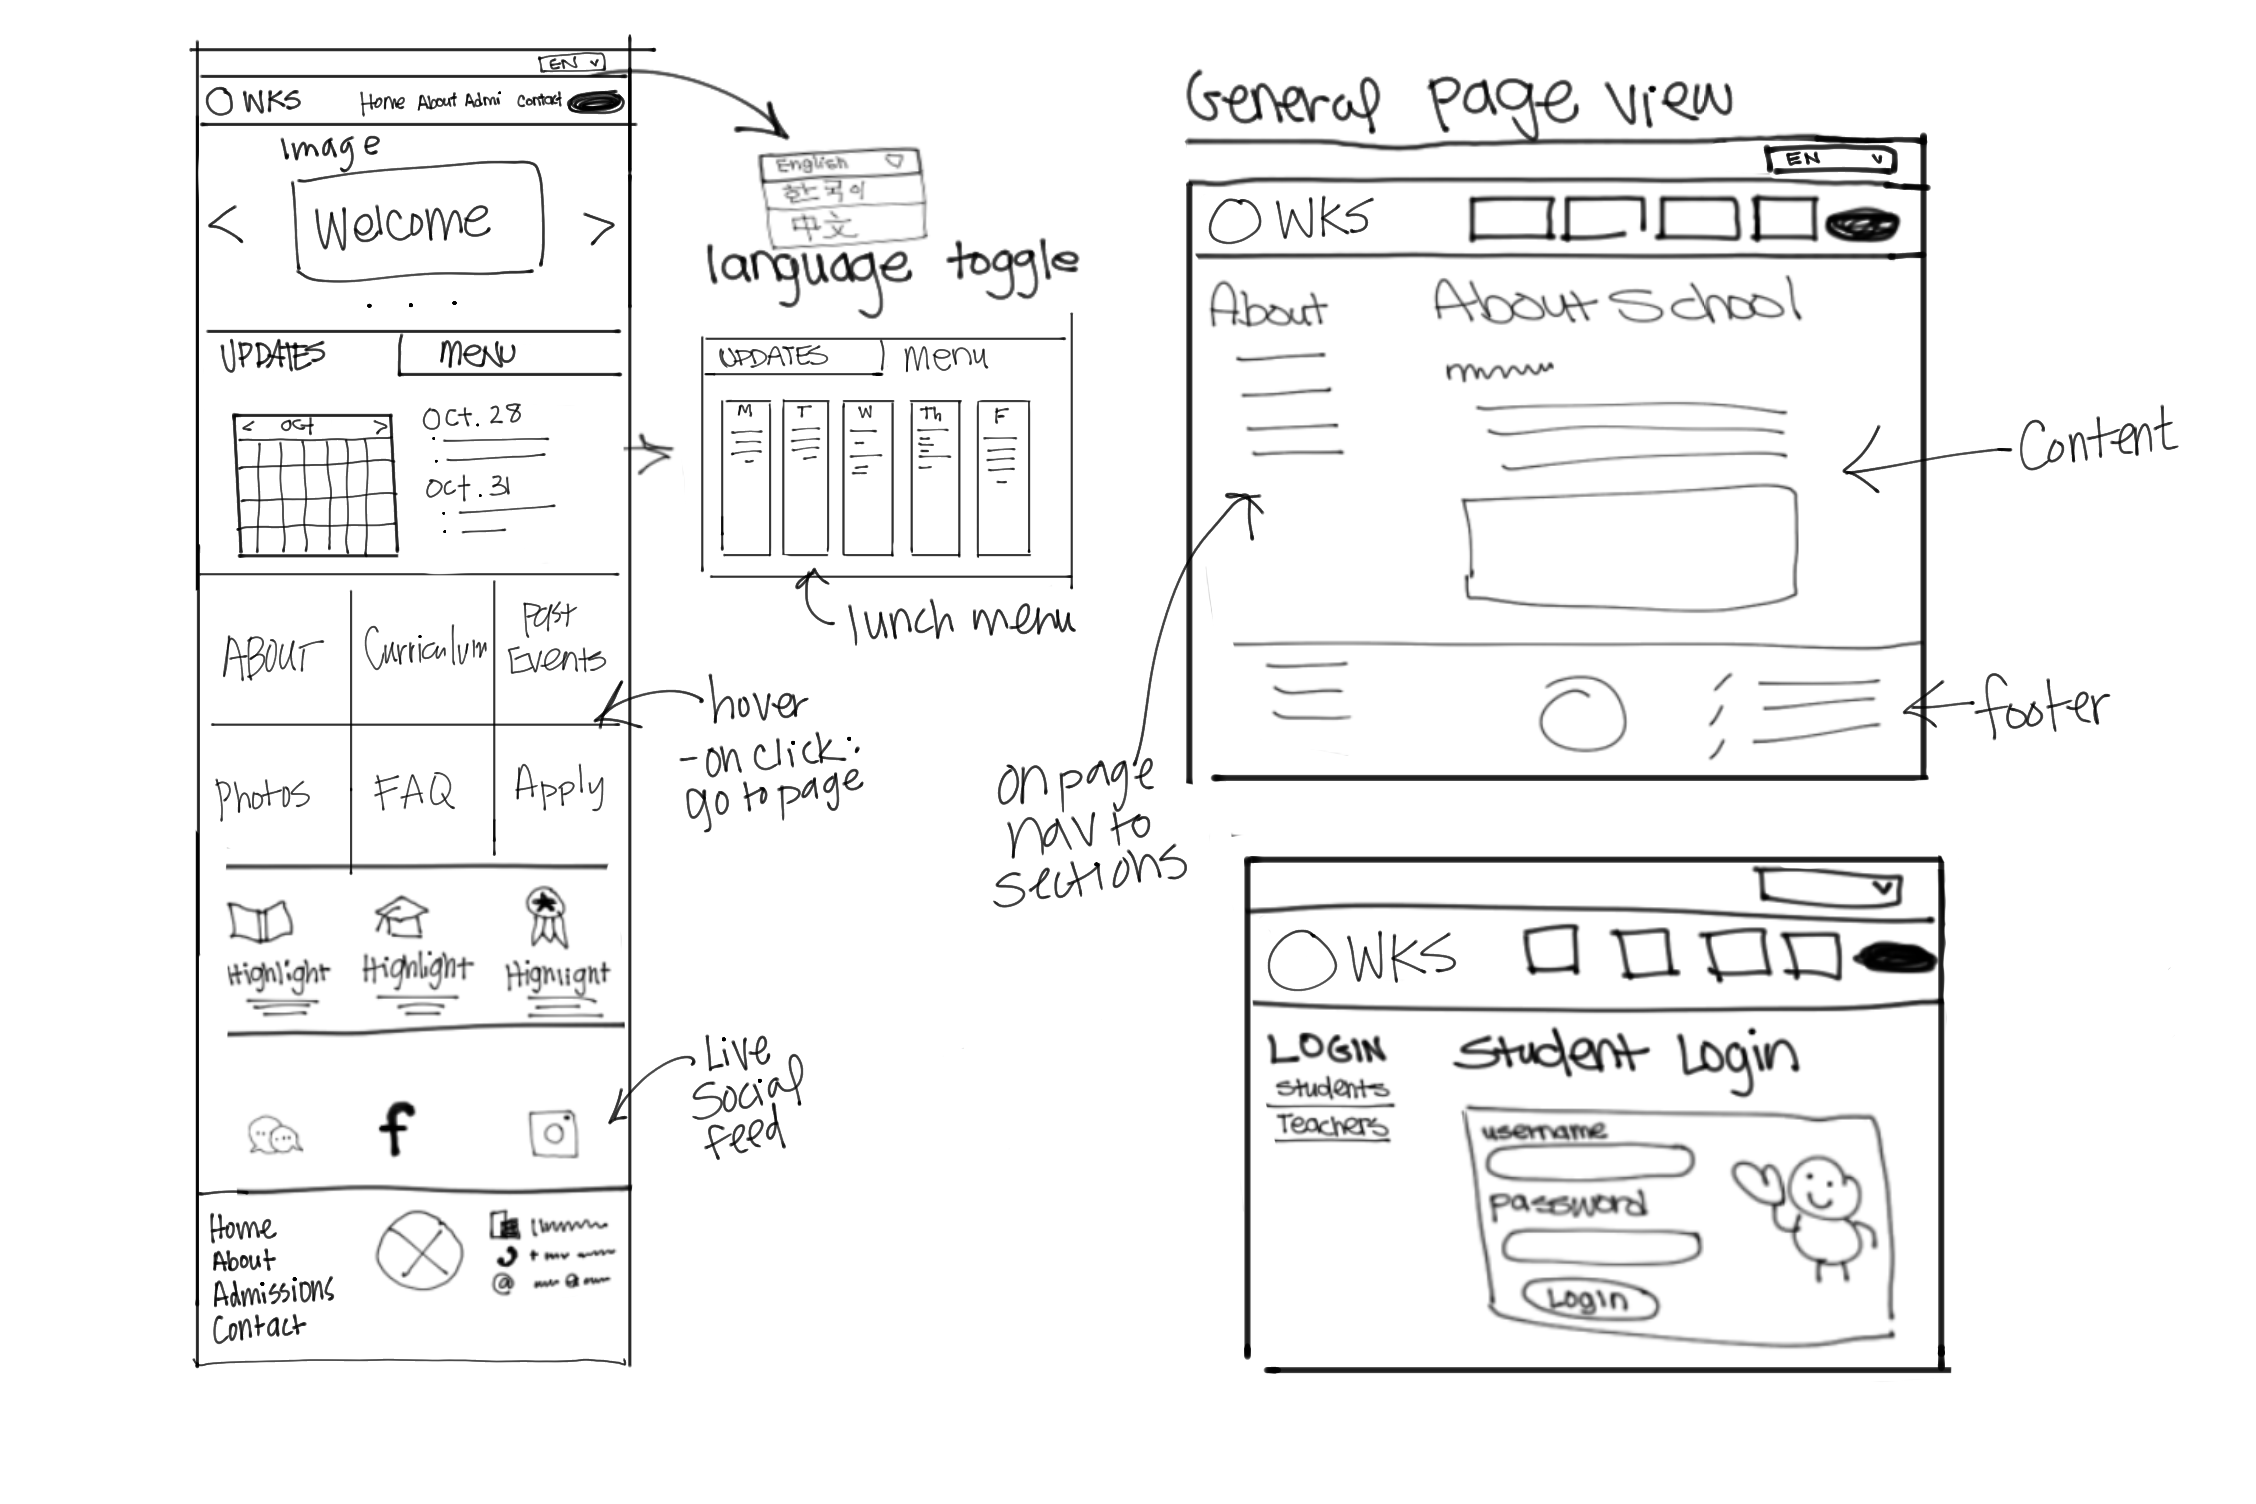 EN
WKS Home About Admi Contact
Image
Welcome
UPDATES MENU
< OCT >
Oct. 28
Oct. 31
ABOUT Curriculum Past Events
Photos FAQ Apply
Highlight Highlight Highlight
f
Home
About
Admissions
Contact
@
English
한국어
中文
language toggle
UPDATES Menu
M T W Th F
lunch menu
hover
- on click:
go to page
Live
Social
feed
General page view
EN
WKS
About
About School
Content
footer
on page
nav to
sections
WKS
LOGIN
Students
Teachers
Student Login
username
password
Login